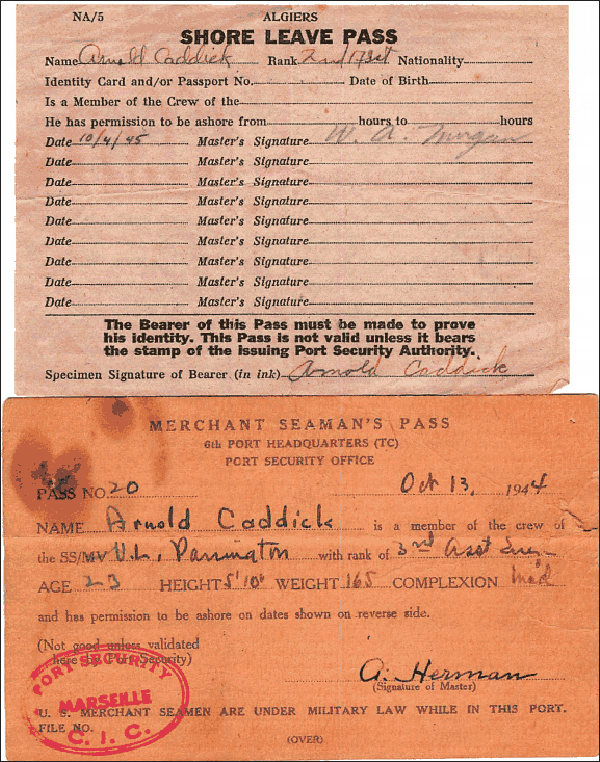 NA/5 ALGIERS
SHORE LEAVE PASS
Name Arnold Caddick Rank 2nd Asst Nationality
Identity Card and/or Passport No. Date of Birth
Is a Member of the Crew of the
He has permission to be ashore from hours to hours
Date 10/4/45 Master's Signature W. A. Morgan
Date Master's Signature
Date Master's Signature
Date Master's Signature
Date Master's Signature
Date Master's Signature
Date Master's Signature
Date Master's Signature
Date Master's Signature
The Bearer of this Pass must be made to prove
his identity. This Pass is not valid unless it bears
the stamp of the issuing Port Security Authority.
Specimen Signature of Bearer (in ink) Arnold Caddick
MERCHANT SEAMAN'S PASS
6th PORT HEADQUARTERS (TC)
PORT SECURITY OFFICE
PASS NO. 20 Oct 13, 1944
NAME Arnold Caddick is a member of the crew of
the SS/MV V.L. Parrington with rank of 3rd Asst
AGE 23 HEIGHT 5'10" WEIGHT 165 COMPLEXION Med
and has permission to be ashore on dates shown on reverse side.
(Not good unless validated
here by Port Security)
A. Herman
(Signature of Master)
PORT SECURITY
MARSEILLE
C. I. C.
U. S. MERCHANT SEAMEN ARE UNDER MILITARY LAW WHILE IN THIS PORT.
FILE NO.
(OVER)